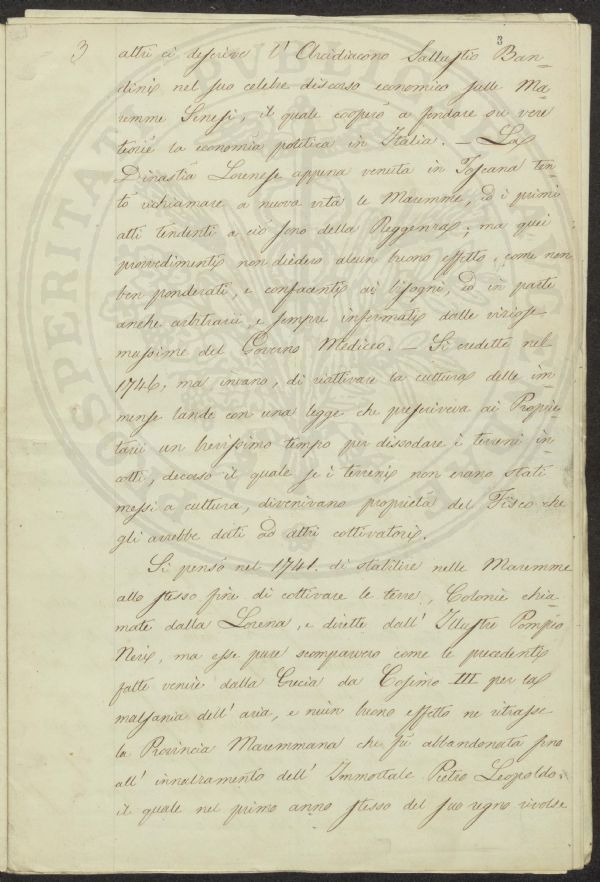 3
3
altri ci descrive l'Arcidiacono Sallustio Ban-
dini nel suo celebre discorso economico sulle Ma-
remme Senesi, il quale cooperò a fondare su vere
teorie la economia politica in Italia. – La
Dinastia Lorenese appena venuta in Toscana ten-
tò richiamare a nuova vita le Maremme, ed i primi
atti tendenti a ciò sono della Reggenza; ma quei
provvedimenti non diedero alcun buono effetto, come non
ben ponderati, e confacenti ai bisogni, ed in parte
anche arbitrarii, e sempre informati dalle viziose
massime del Governo Mediceo. – Si credette nel
1746, ma invano, di riattivare la cultura delle im-
mense lande con una legge che prescriveva ai Proprie
tarii un brevissimo tempo per dissodare i terreni in-
colti, decorso il quale se i terreni non erano stati
messi a cultura, divenivano proprietà del Fisco che
gli avrebbe dati ad altri coltivatori.
Si pensò nel 1741. di stabilire nelle Maremme
allo stesso fine di coltivare le terre, Colonie chia-
mate dalla Lorena, e dirette dall' Illustre Pompeo
Neri, ma esse pure scomparvero come le precedenti
fatte venire dalla Grecia da Cosimo III per la
malsania dell' aria, e niun buono effetto ne ritrasse
la Provincia Maremmana che fu abbandonata fino
all' innalzamento dell' Immortale Pietro Leopoldo,
il quale nel primo anno stesso del suo regno rivolse
PROSPERITATI PVBLICAE